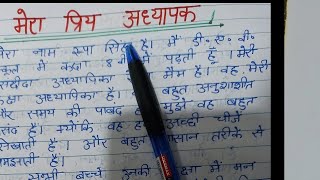 मेरा प्रिय अध्यापक
मेरा नाम रूपा सिंह है। मैं डी. ए. वी.
स्कूल में कक्षा 8 में पढ़ती हूँ। मेरी
पसंदीदा अध्यापिका मैम है। वह मेरी
कक्षा अध्यापिका है। बहुत अनुशाशीत
और समय की पाबंद है। मुझे वह बहुत
पसंद है। क्योंकि वह हमें अच्छी चीजें
सिखाती है। और बहुत आसान तरीके से
समझाती है।
सभी बच्चे उनकी कक्षा में मन